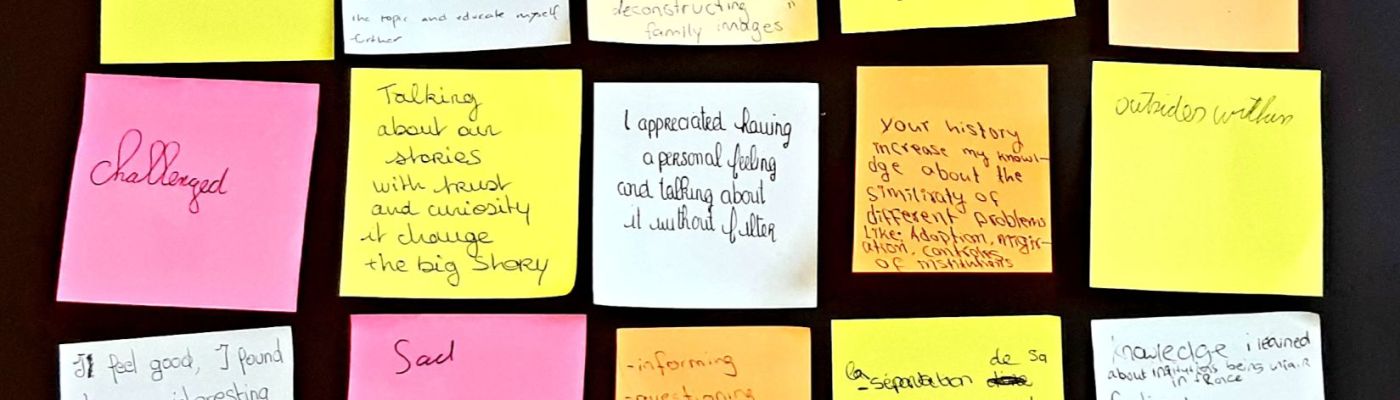 the topic and educate myself
further
deconstructing
family images"
challenged
Talking
about our
stories
with trust
and curiosity
it change
the big story
I appreciated having
a personal feeling
and talking about
it without filter
your history
increase my knowl-
dge about the
similiraty of
different problems
like: Adoption, migr-
ation, controles
of institutions
outsides within
I feel good, I found
interesting
Sad
-informing
-questioning
la séparation de sa
knowledge i learned
about institutions being unfair
in france